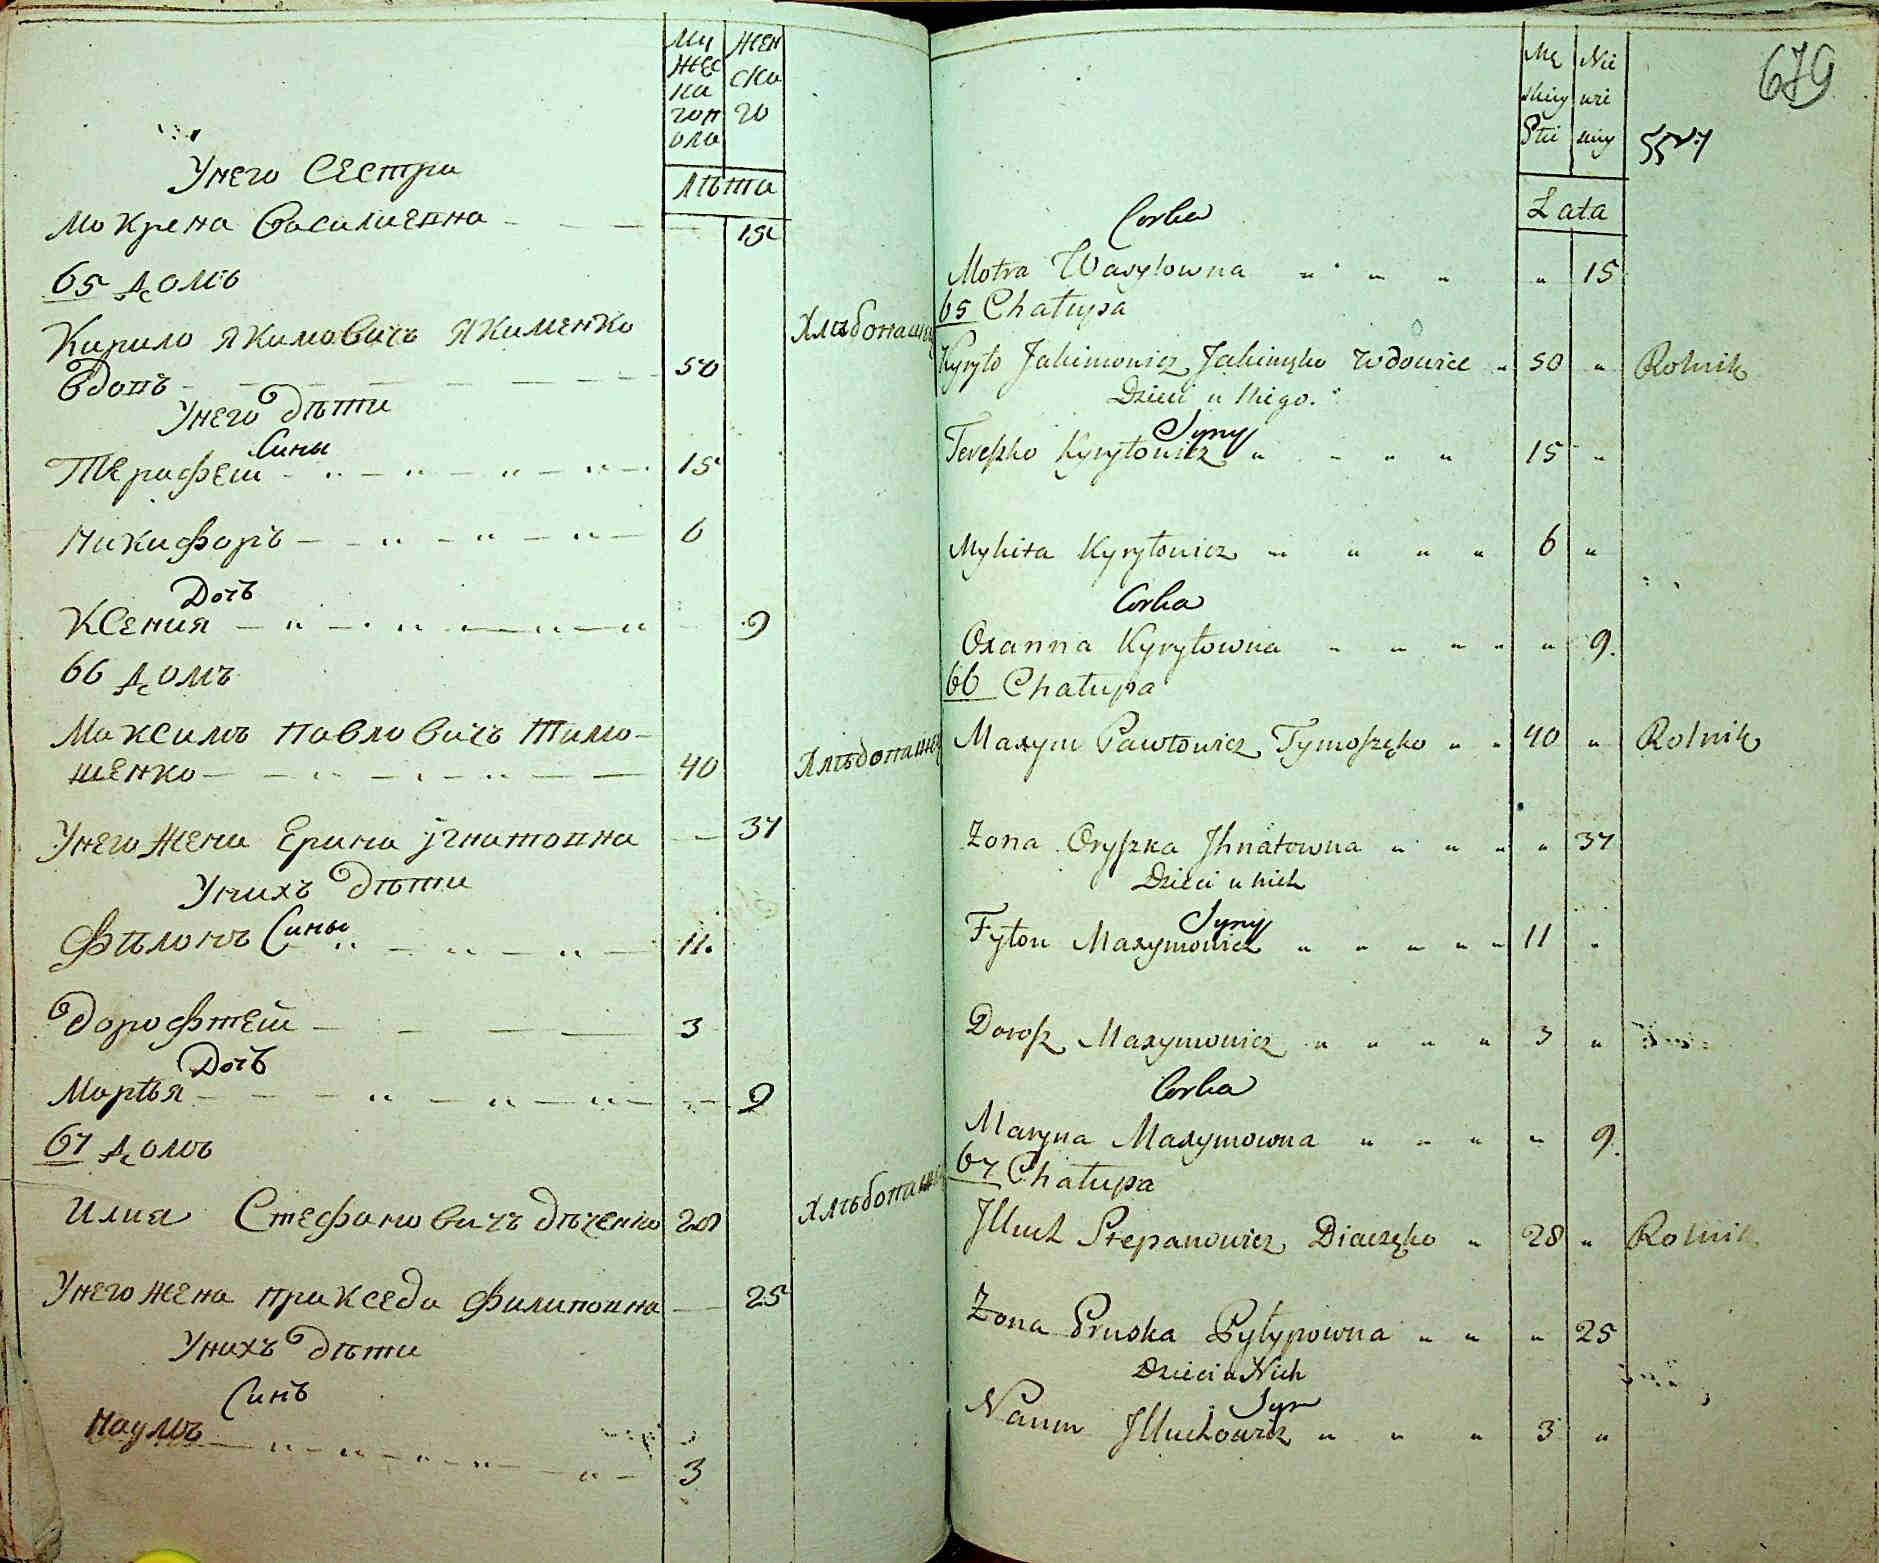 Му
жес
ка
гоп
ола
Жен
ска
го
Лѣта
Унего Сестра
Мокрена Василиевна 15
65 домъ
Кирило Якимовичъ Якименко Хлѣбопашец
Вдовъ 50
Унего дѣти
Сины
Терафеи 15
Никифоръ 6
Дочъ
Ксения 9
66 домъ
Максимъ Павловичъ Тимо-
шенко 40 Хлѣбопашец
Унего жена Ерина Игнатовна 37
Унихъ дѣти
Филонъ Сины 11.
Дорофтей 3
Дочъ
Марѣя 9
67 домъ
Илия Стефановичъ Дяченко 28 Хлѣбопашец
Унего жена Пракседа Филиповна 25
Унихъ дѣти
Синъ
Наумъ
3
679
Mę
skiey
Płci
Nie
wie
ściey
Lata
Corka
Motra Wasylowna " " " " 15
65 Chałupa
Kyryło Jakimowicz Jakimęko Wdowiec " 50 " Rolnik
Dzieci u Niego.
Syny
Tereszko Kyryłowicz " " " " 15 "
Mykita Kyryłowicz " " " " 6 "
Corka
Oxanna Kyryłowna " " " " " 9.
66 Chałupa
Maxym Pawłowicz Tymoszęko " " 40 " Rolnik
Zona Oryszka Jhnatowna " " " " 37
Dzieci u nich
Syny
Fyłon Maxymowicz " " " " " 11 "
Dorosz Maxymowicz " " " " 3 "
Corka
Maryna Maxymowna " " " " 9.
67 Chałupa
Illuch Stepanowicz Diaczęko " 28 " Rolnik
Zona Pruska Pyłypowna " " " 25
Dzieci u Nich
Syn
Naum Illuchowicz " " " 3 "